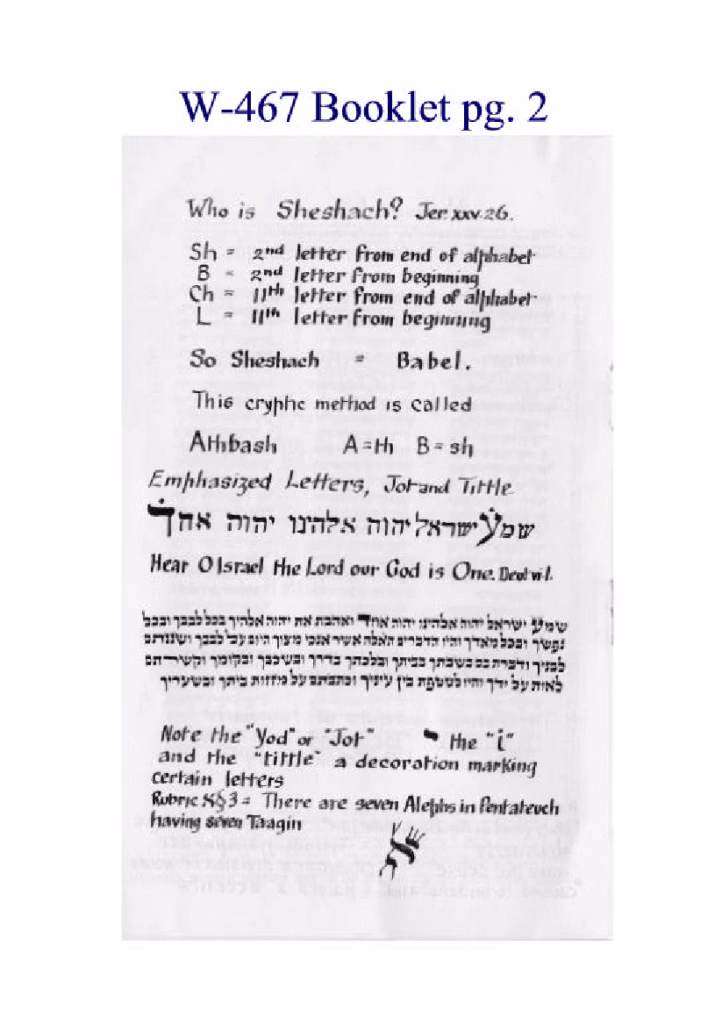 W-467 Booklet pg. 2
Who is Sheshach? Jer. xxv. 26.
Sh = 2nd letter from end of alphabet
B = 2nd letter from beginning
Ch = 11th letter from end of alphabet
L = 11th letter from beginning
So Sheshach = Babel.
This cryptic method is called
Athbash A = th B = sh
Emphasized Letters, Jot and Tittle
שמע ישראל יהוה אלהינו יהוה אחד
Hear O Israel the Lord our God is One. Deut vi-1.
שמע ישראל יהוה אלהינו יהוה אחד ואהבת את יהוה אלהיך בכל לבבך ובכל
נפשך ובכל מאדך והיו הדברים האלה אשר אנכי מצוך היום על לבבך ושננתם
לבניך ודברת בם בשבתך בביתך ובלכתך בדרך ובשכבך ובקומך וקשרתם
לאות על ידך והיו לטטפת בין עיניך וכתבתם על מזזות ביתך ובשעריך
Note the "Yod" or "Jot" י the "i"
and the "tittle" a decoration marking
certain letters
Rubric א § 3 = There are seven Alephs in Pentateuch
having seven Taagin
א